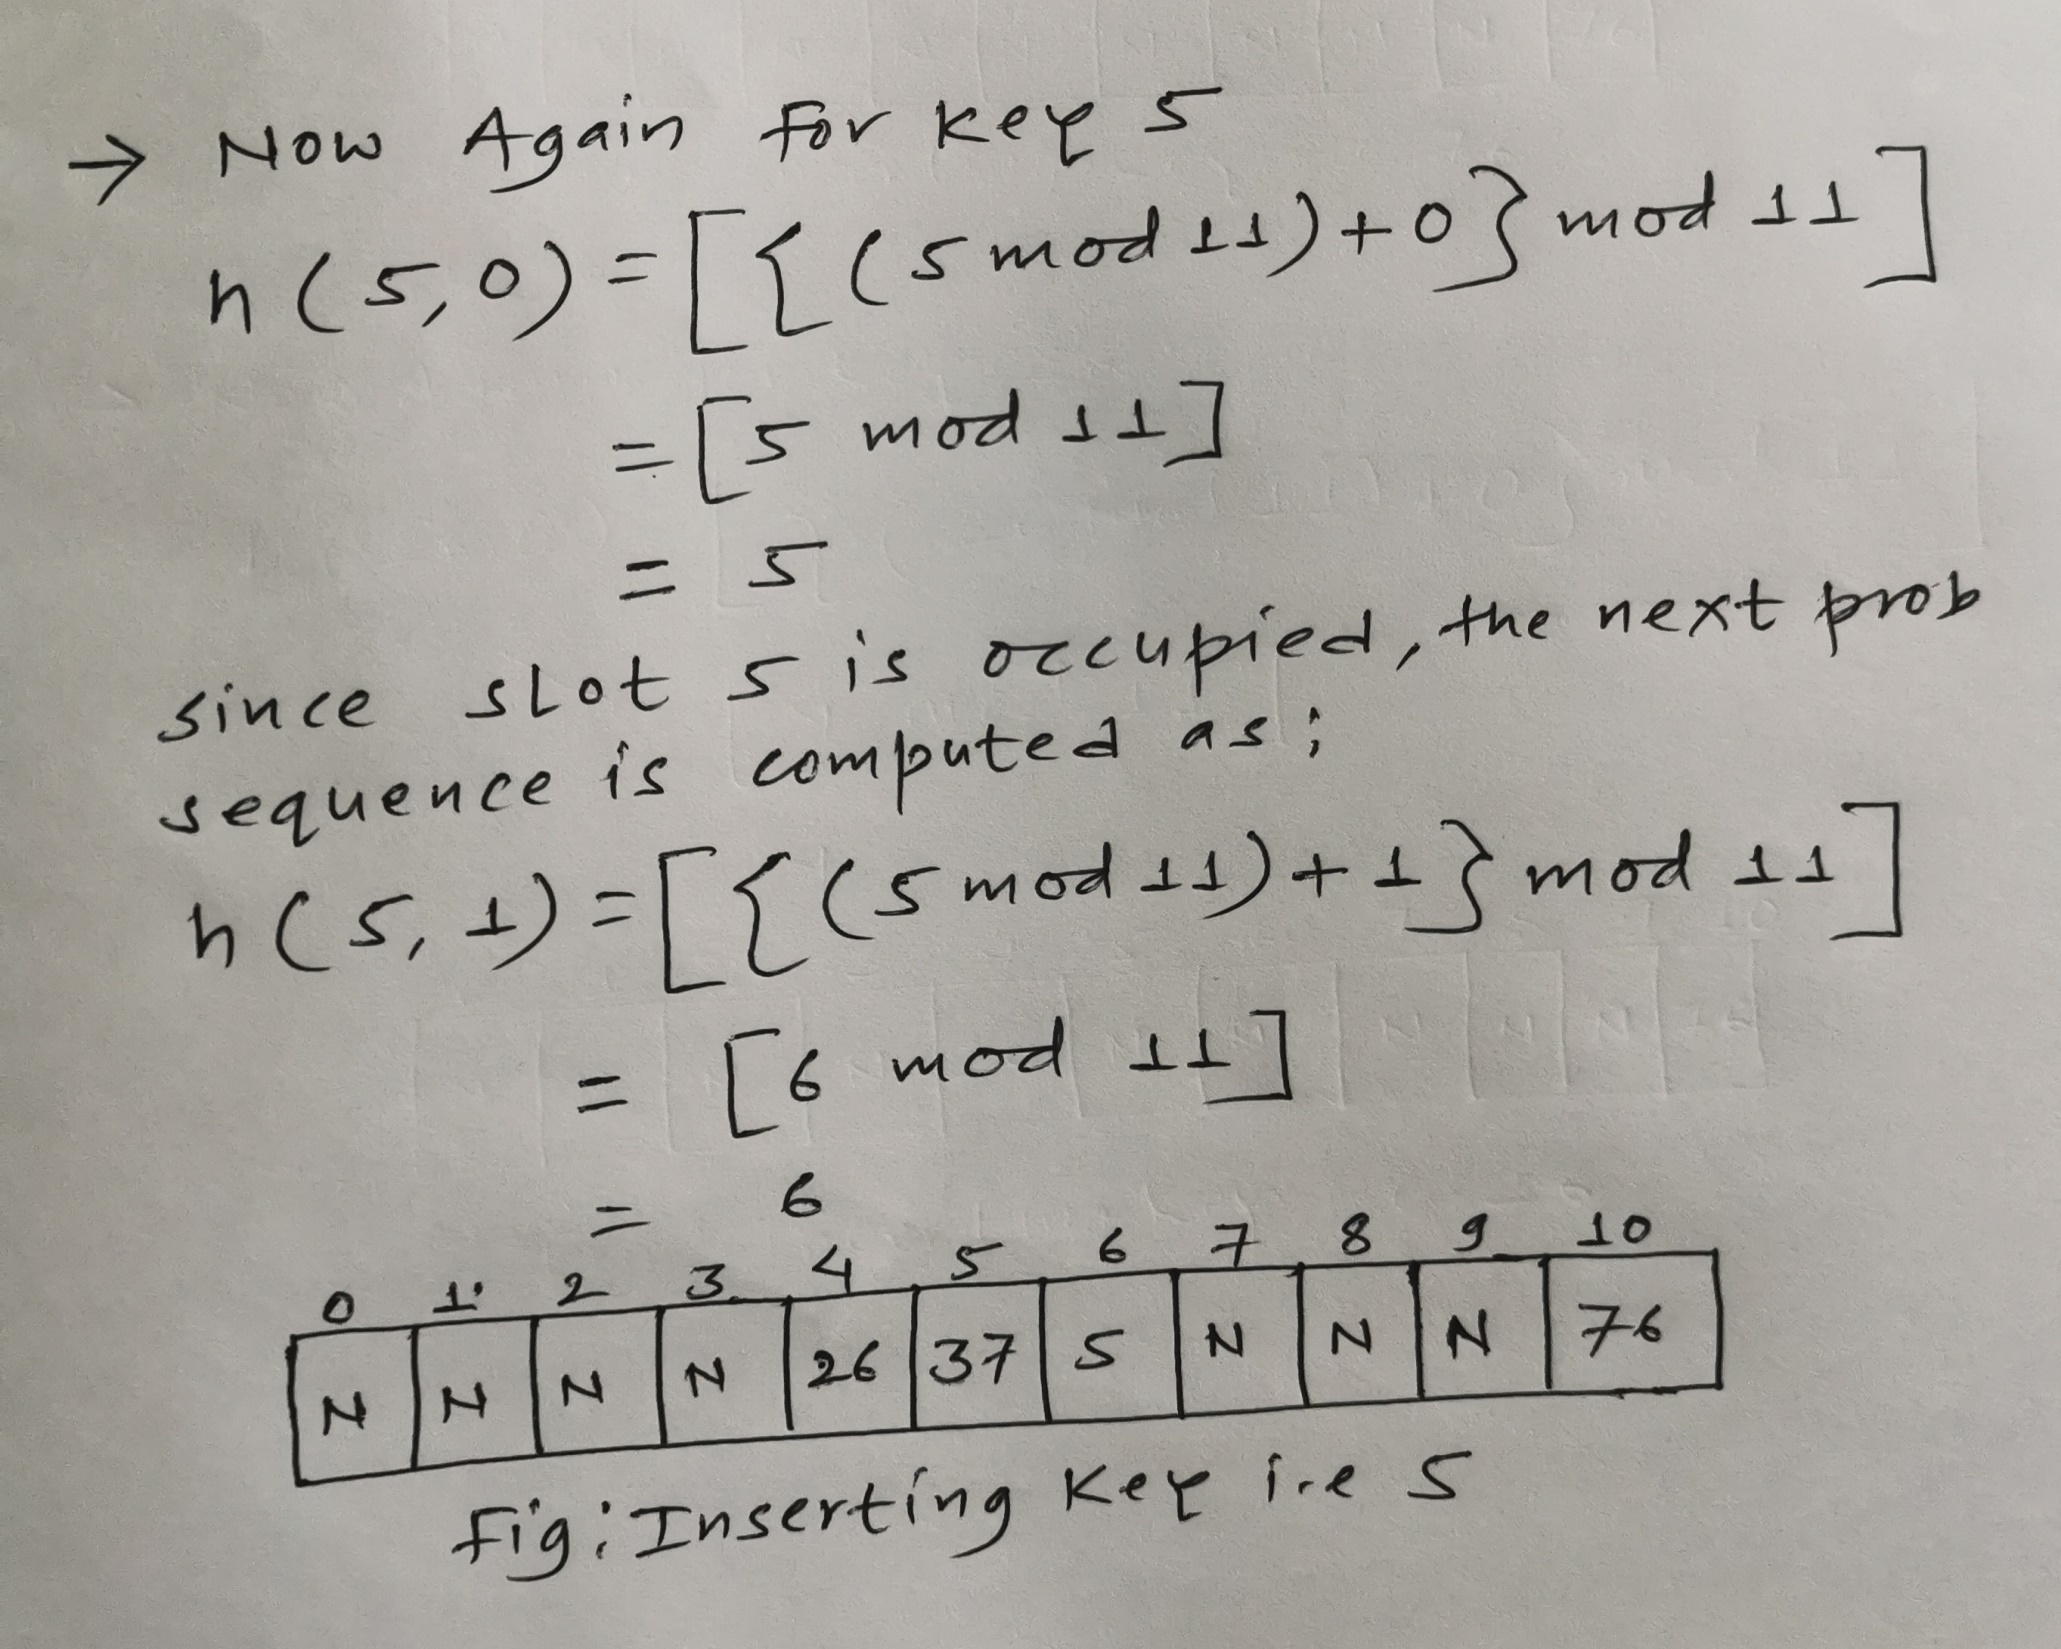 → Now Again for key 5
h(5,0) = [{(5 mod 11)+0} mod 11]
= [5 mod 11]
= 5
since slot 5 is occupied, the next prob
sequence is computed as;
h(5,1) = [{(5 mod 11)+1} mod 11]
= [6 mod 11]
= 6
0 1 2 3 4 5 6 7 8 9 10
N N N N 26 37 5 N N N 76
Fig: Inserting Key i.e 5